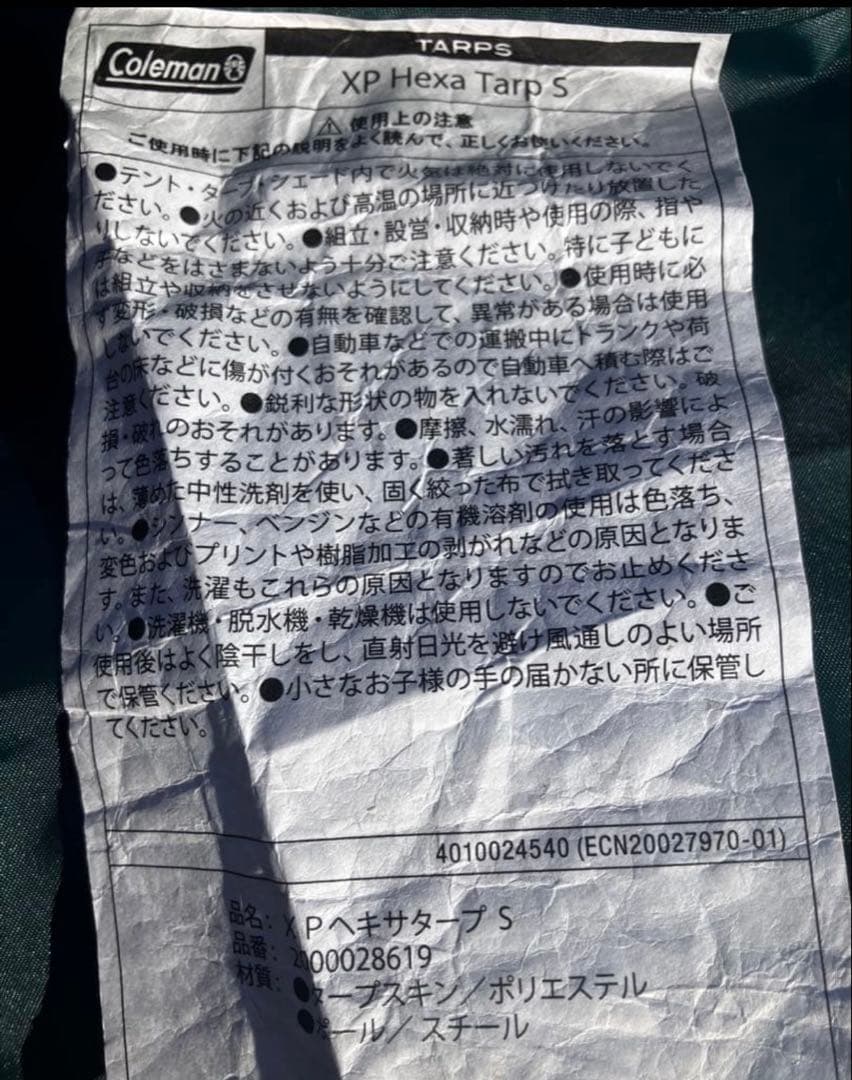 Coleman
TARPS
XP Hexa Tarp S
⚠ 使用上の注意
ご使用時に下記の説明をよく読んで、正しくお使いください。
●テント・タープ・シェード内で火気は絶対に使用しないでく
ださい。●火の近くおよび高温の場所に近づけたり放置した
りしないでください。●組立・設営・収納時や使用の際、指や
手などをはさまないよう十分ご注意ください。特に子どもに
は組立や収納をさせないようにしてください。●使用時に必
ず変形・破損などの有無を確認して、異常がある場合は使用
しないでください。●自動車などでの運搬中にトランクや荷
台の床などに傷が付くおそれがあるので自動車へ積む際はご
注意ください。●鋭利な形状の物を入れないでください。破
損・破れのおそれがあります。●摩擦、水濡れ、汗の影響によ
って色落ちすることがあります。●著しい汚れを落とす場合
は、薄めた中性洗剤を使い、固く絞った布で拭き取ってくださ
い。●シンナー、ベンジンなどの有機溶剤の使用は色落ち、
変色およびプリントや樹脂加工の剥がれなどの原因となりま
す。また、洗濯もこれらの原因となりますのでお止めくださ
い。●洗濯機・脱水機・乾燥機は使用しないでください。●ご
使用後はよく陰干しをし、直射日光を避け風通しのよい場所
で保管ください。●小さなお子様の手の届かない所に保管し
てください。
4010024540 (ECN20027970-01)
品名: XPヘキサタープ S
品番: 2000028619
材質: ●タープスキン／ポリエステル
●ポール／スチール